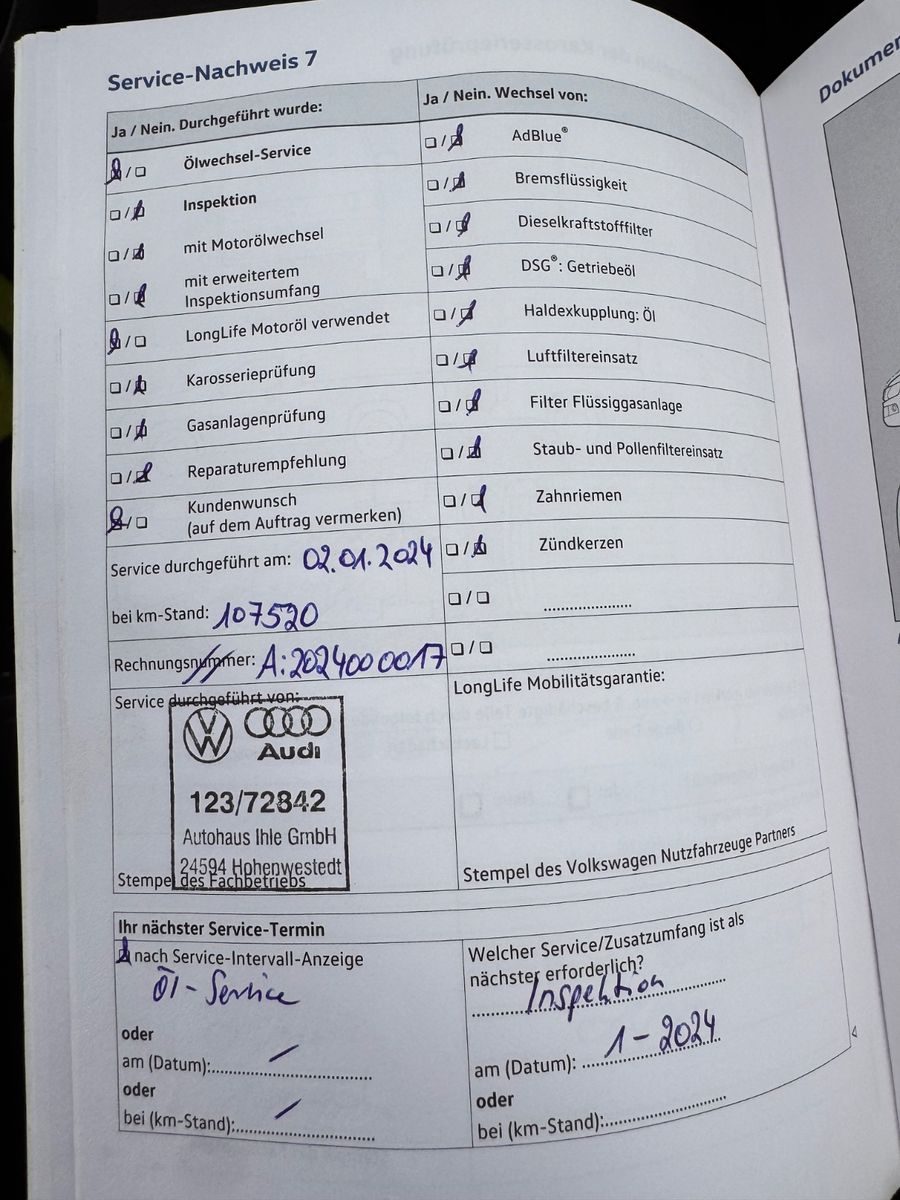 Service-Nachweis 7
Ja / Nein. Durchgeführt wurde:
Ölwechsel-Service
Inspektion
mit Motorölwechsel
mit erweitertem
Inspektionsumfang
LongLife Motoröl verwendet
Karosserieprüfung
Gasanlagenprüfung
Reparaturempfehlung
Kundenwunsch
(auf dem Auftrag vermerken)
Service durchgeführt am: 02.01.2024
bei km-Stand: 107520
Rechnungsnummer: A:2024000017
Service durchgeführt von:
Audi
123/72842
Autohaus Ihle GmbH
24594 Hohenwestedt
Stempel des Fachbetriebs
Ja / Nein. Wechsel von:
AdBlue®
Bremsflüssigkeit
Dieselkraftstofffilter
DSG®: Getriebeöl
Haldexkupplung: Öl
Luftfiltereinsatz
Filter Flüssiggasanlage
Staub- und Pollenfiltereinsatz
Zahnriemen
Zündkerzen
LongLife Mobilitätsgarantie:
Stempel des Volkswagen Nutzfahrzeuge Partners
Ihr nächster Service-Termin
nach Service-Intervall-Anzeige
Öl-Service
oder
am (Datum):
oder
bei (km-Stand):
Welcher Service/Zusatzumfang ist als
nächster erforderlich?
Inspektion
am (Datum): 1-2024
oder
bei (km-Stand):